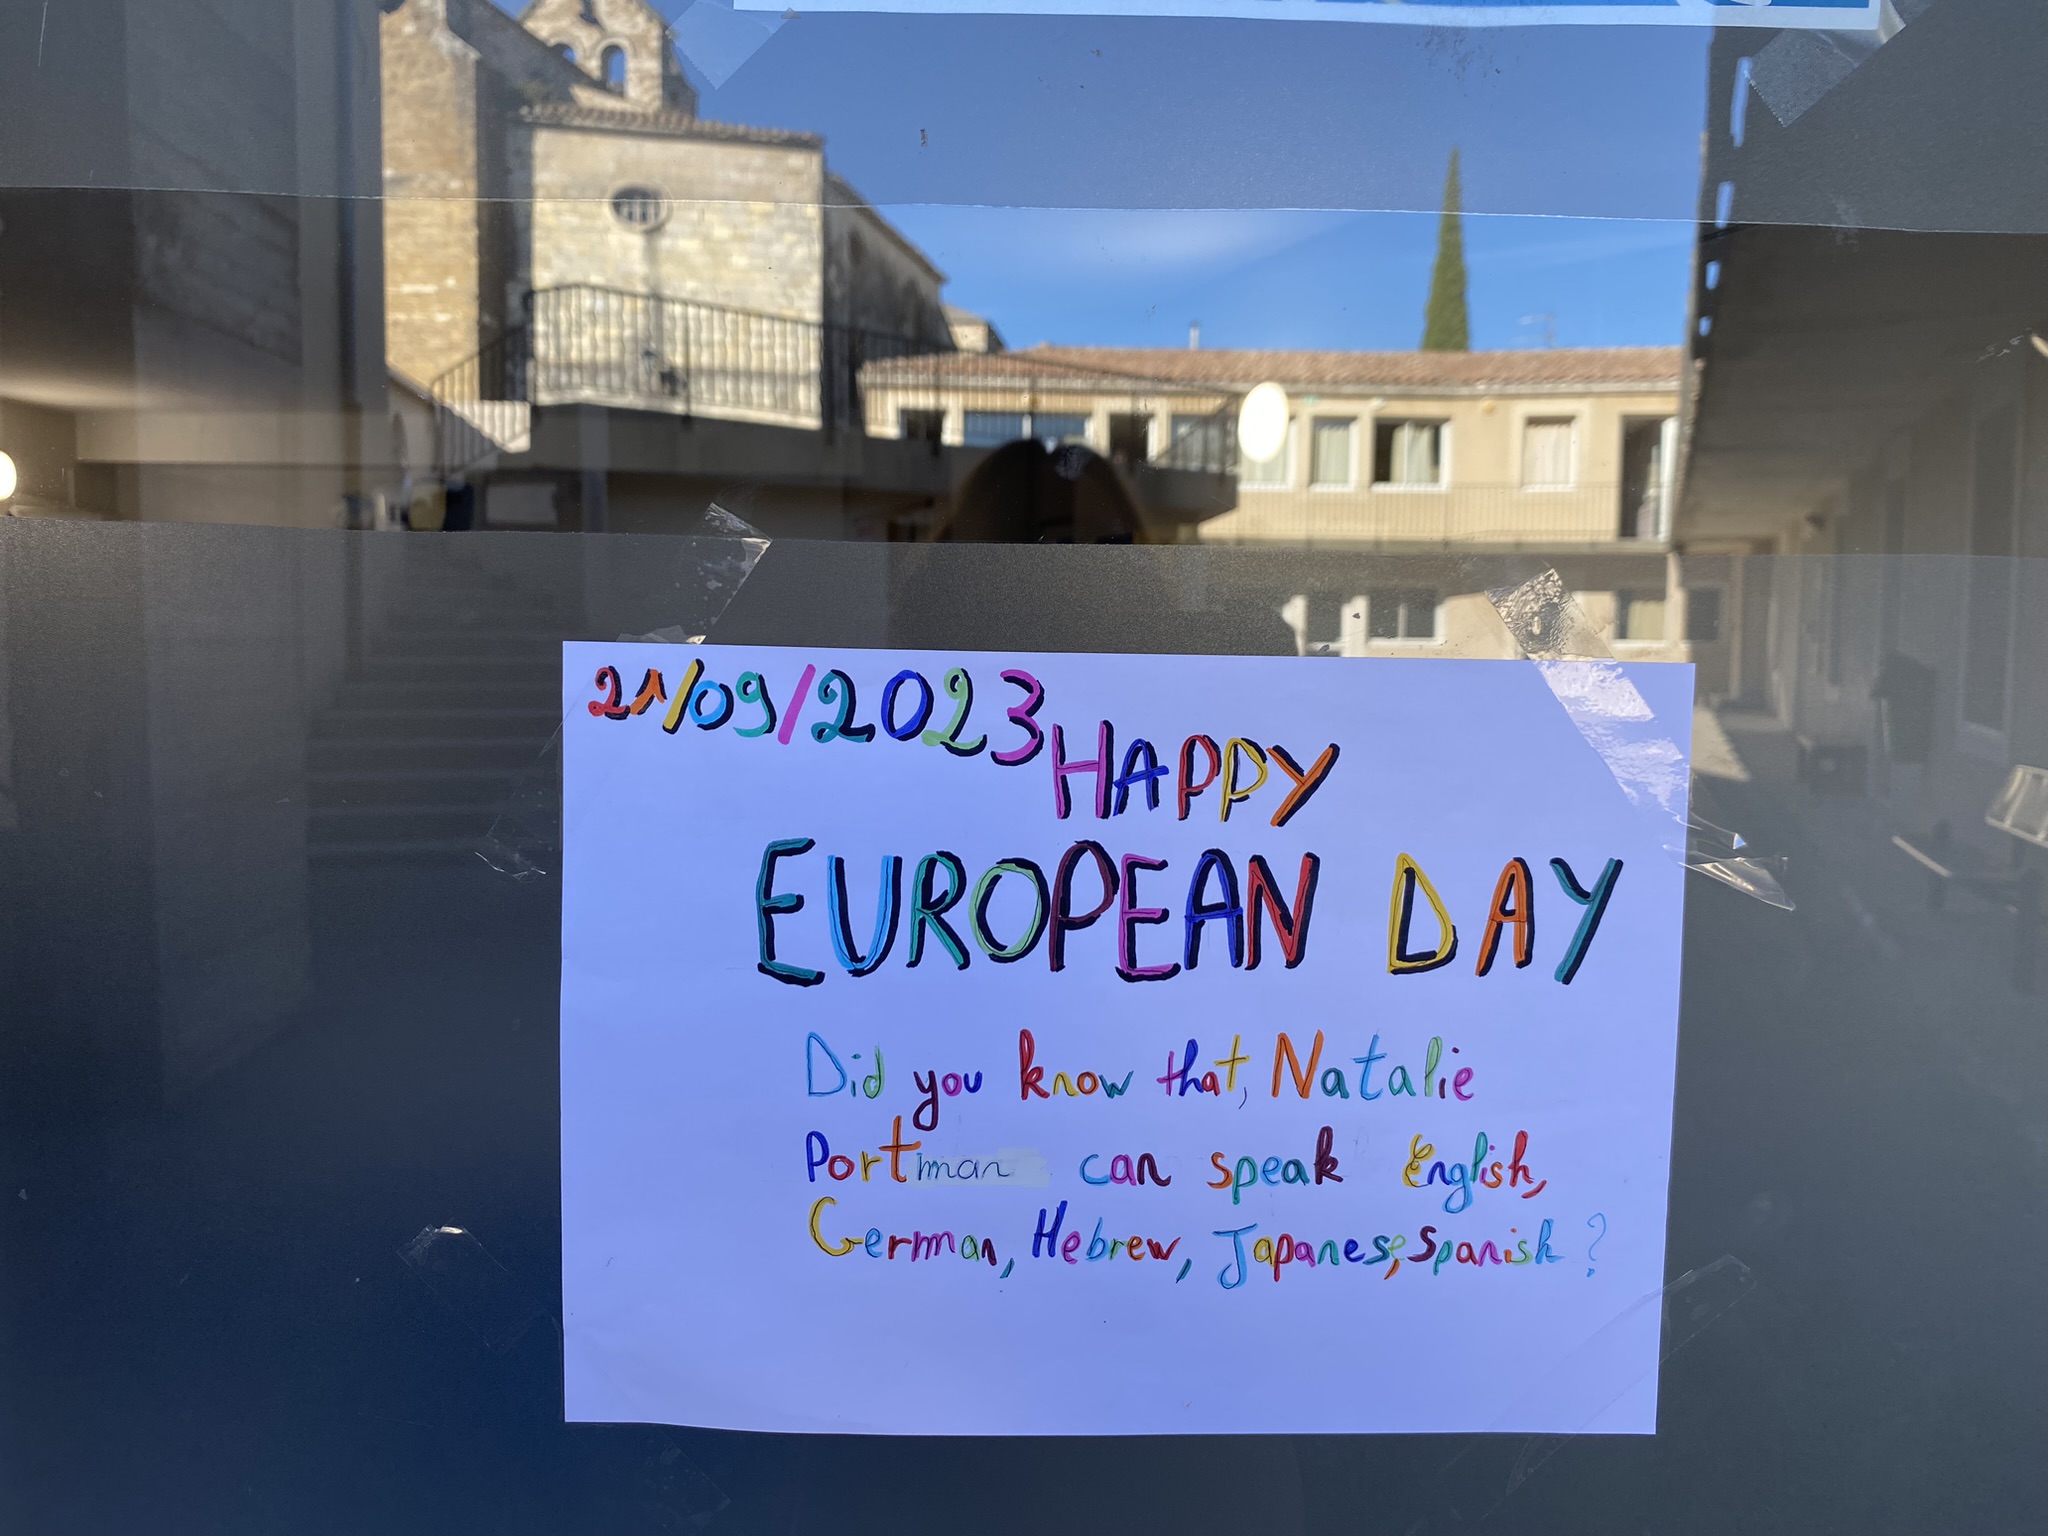 21/09/2023
HAPPY
EUROPEAN DAY
Did you know that, Natalie
Portman can speak English,
German, Hebrew, Japanese, Spanish ?